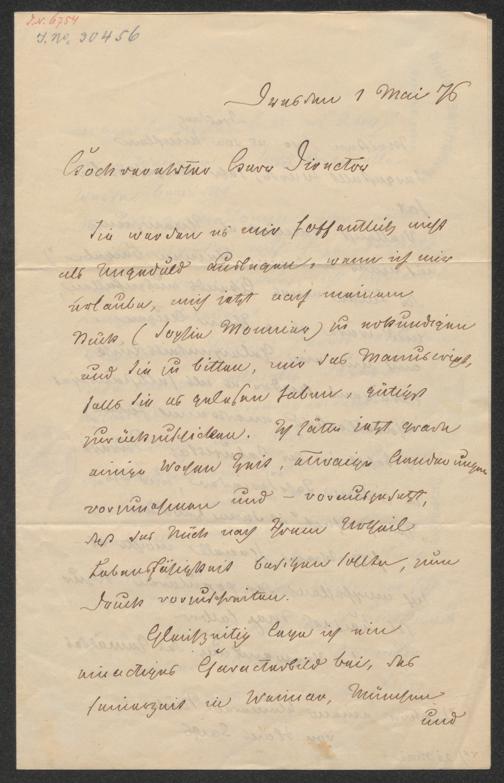 J.N. 6754
J. No. 30456
Dresden 1 Mai 76
Hochverehrter Herr Director
Sie werden es mir hoffentlich nicht
als Ungeduld auslegen, wenn ich mir
erlaube, mich jetzt nach meinem
Stück (Sophie Monnier) zu erkundigen
und Sie zu bitten, mir das Manuscript,
falls Sie es gelesen haben, gütigst
zurückzuschicken. Ich hätte jetzt grade
einige Wochen Zeit, etwaige Aenderungen
vorzunehmen und – vorausgesetzt,
daß das Stück nach Ihrem Urtheil
Lebensfähigkeit besitzen sollte, zum
Druck vorzuschreiten.
Gleichzeitig lege ich ein
einactiges Characterbild bei, das
seinerzeit in Weimar, München
und